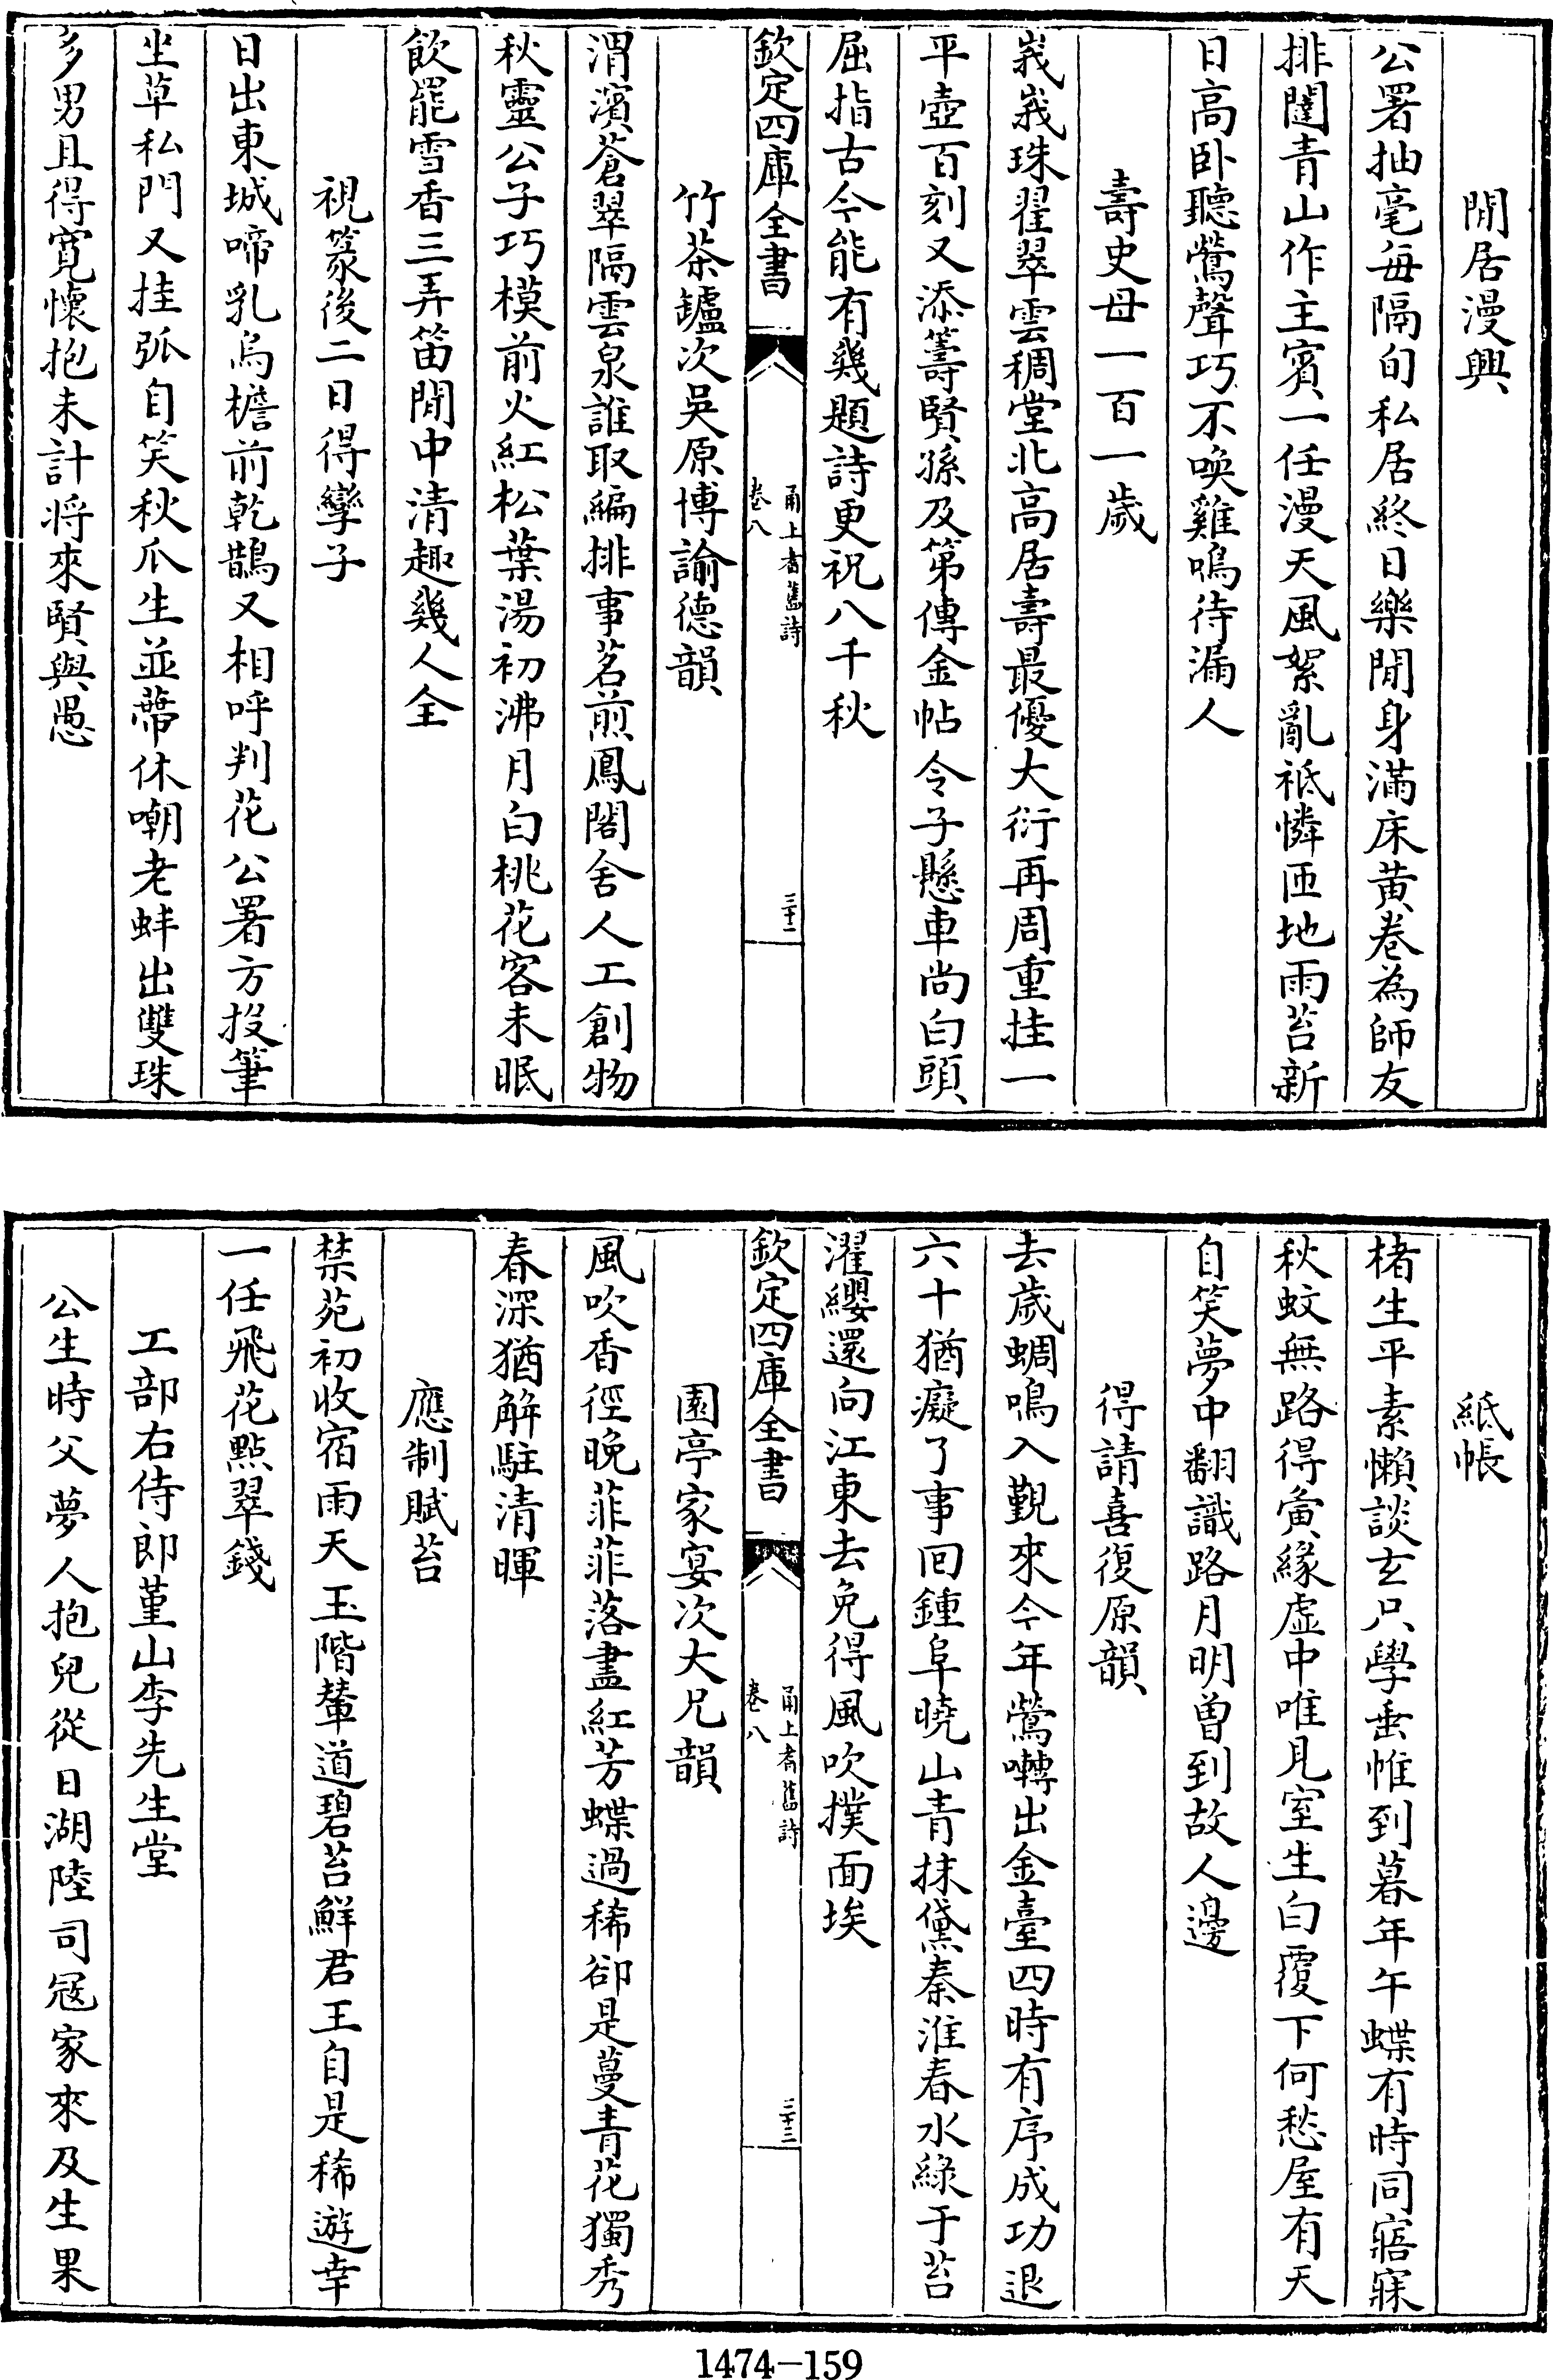 閒居漫興
公署抽毫每隔旬私居終日樂閒身滿床黃卷為師友
排闥青山作主賓一任漫天風絮亂祗憐匝地雨苔新
日高卧聽鶯聲巧不喚雞鳴待漏人
壽史母一百一歲
峩峩珠翟翠雲稠堂北高居壽最優大衍再周重挂一
平壺百刻又添籌賢孫及第傳金帖令子懸車尚白頭
屈指古今能有幾題詩更祝八千秋
欽定四庫全書
甬上耆舊詩
卷八
三十二
竹茶鑪次吳原博諭德韻
渭濱蒼翠隔雲泉誰取編排事茗煎鳳閣舍人工創物
秋靈公子巧模前火紅松葉湯初沸月白桃花客未眠
飲罷雪香三弄笛閒中清趣幾人全
視篆後二日得孿子
日出東城啼乳烏檐前乾鵲又相呼判花公署方投筆
坐草私門又挂弧自笑秋瓜生並蔕休嘲老蚌出雙珠
多男且得寬懷抱未計將來賢與愚
紙帳
楮生平素懶談玄只學垂帷到暮年午蝶有時同寤寐
秋蚊無路得夤緣虛中唯見室生白覆下何愁屋有天
自笑夢中翻識路月明曾到故人邊
得請喜復原韻
去歲蜩鳴入覲來今年鶯囀出金臺四時有序成功退
六十猶癡了事回鍾阜曉山青抹黛秦淮春水綠于苔
濯纓還向江東去免得風吹撲面埃
欽定四庫全書
甬上耆舊詩
卷八
三十三
園亭家宴次大兄韻
風吹香徑晚菲菲落盡紅芳蝶過稀卻是蔓青花獨秀
春深猶解駐清暉
應制賦苔
禁苑初收宿雨天玉階輦道碧苔鮮君王自是稀遊幸
一任飛花點翠錢
工部右侍郎堇山李先生堂
公生時父夢人抱兒從日湖陸司冦家來及生果
1474-159